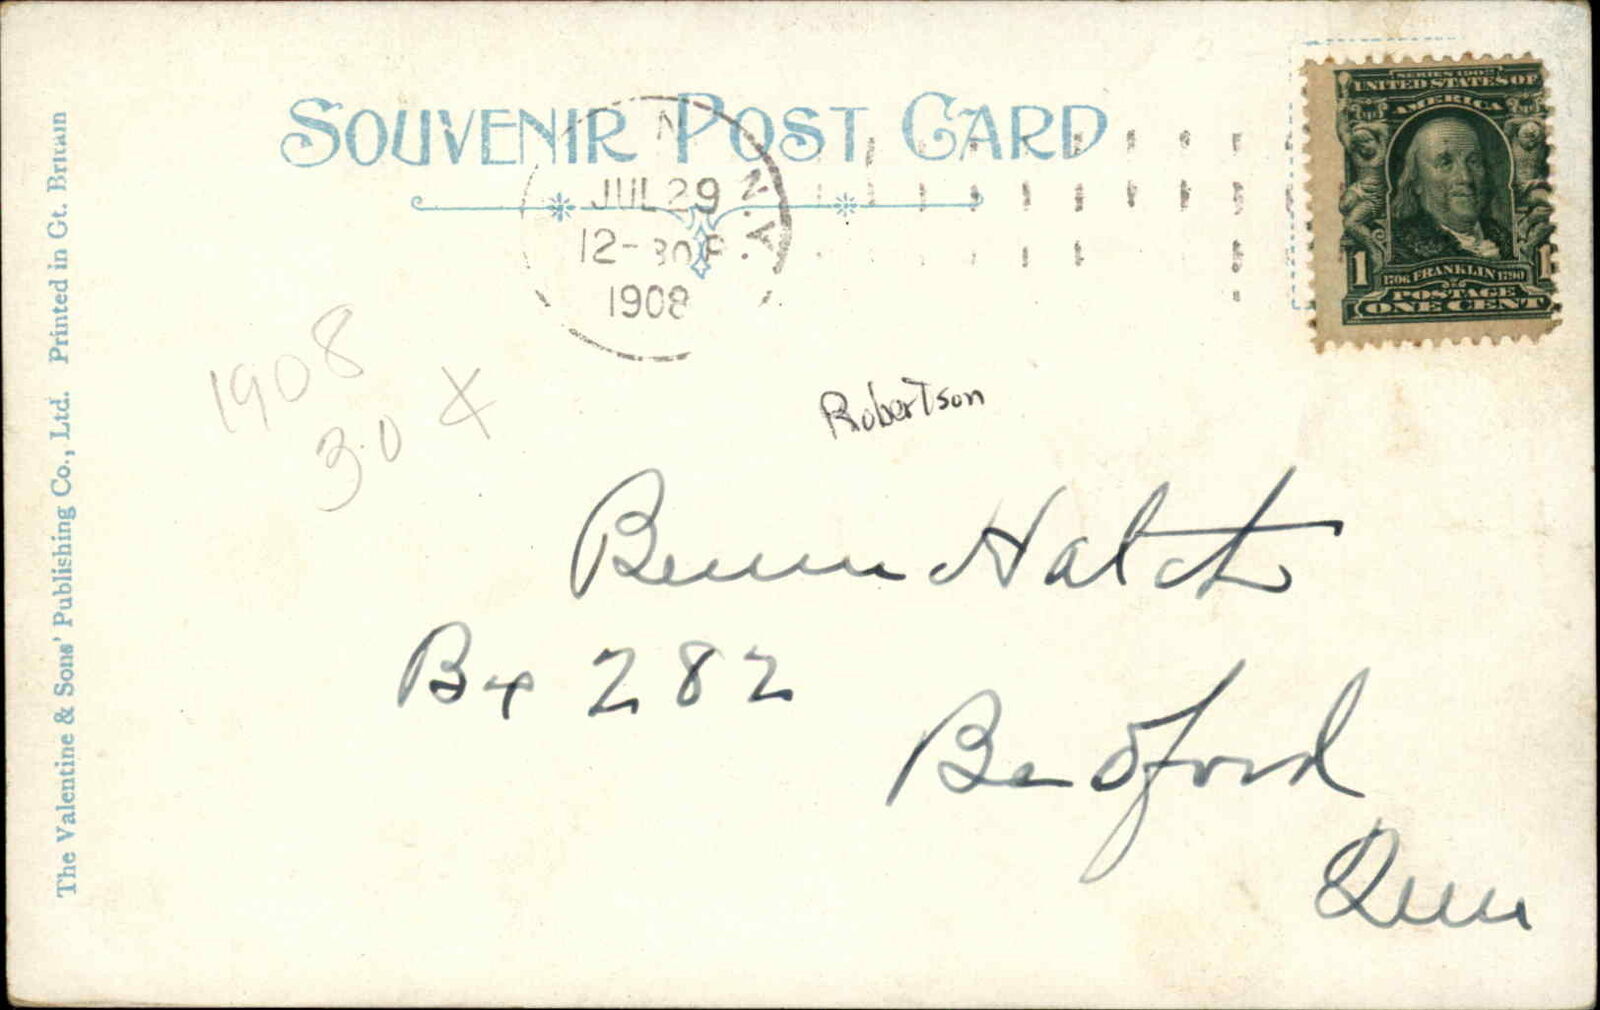 SOUVENIR POST CARD
N
N.Y.
JUL 29
12-30 P
1908
SERIES 1902
UNITED STATES OF
AMERICA
1 1706 FRANKLIN 1790 1
POSTAGE
ONE CENT
1908
3.0
Robertson
Hatch
Bx 282
Bedford
The Valentine & Sons' Publishing Co., Ltd. Printed in Gt. Britain